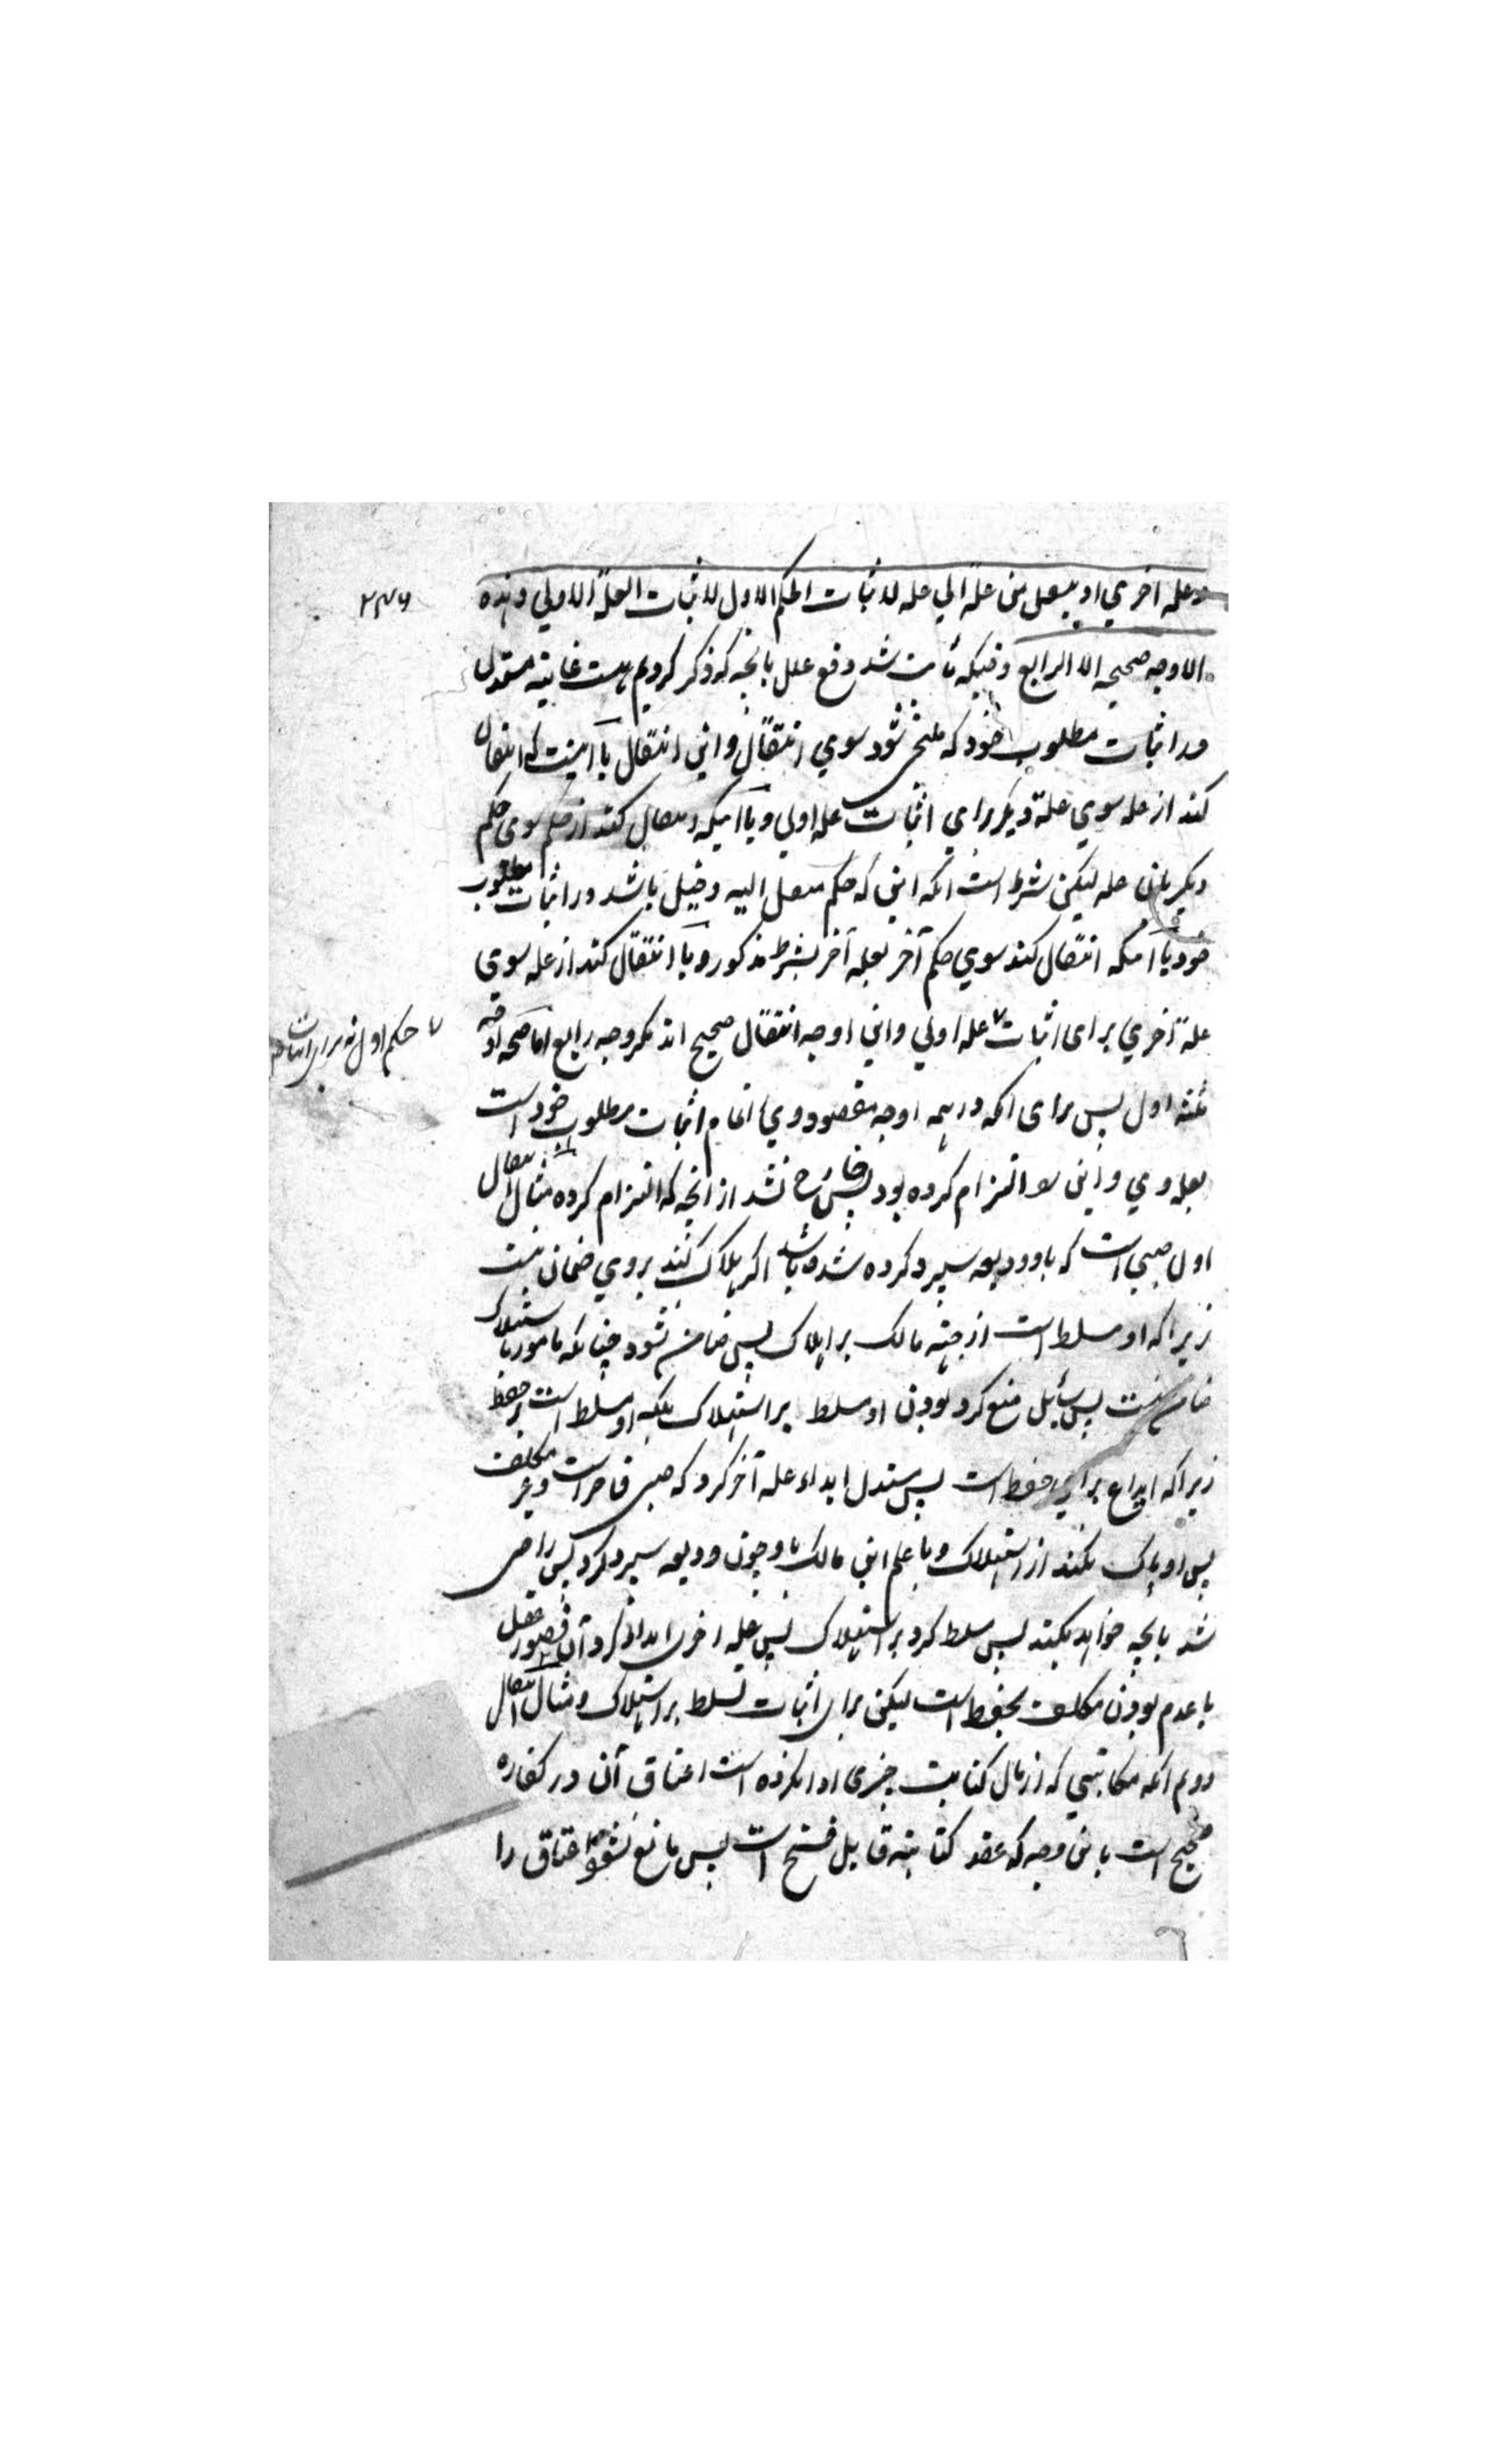 وعلة اخري او ينتقل من علة الي علة لاثبات الحكم الاول لا لاثبات العلة الاولي و هذه
۲۴۶
الاوجه صحيحه الا الرابع وقتيكه ثابت شد دفع علل بانچه كه ذكر كرديم هست غايته مستدل
در اثبات مطلوب خود كه ملتجي شود سوي انتقال و اين انتقال يا اينست كه انتقال
كند از علة سوي علة ديكر براي اثبات علة اولي و يا آنكه انتقال كند از حكم سوي حكم
ديكر بان علة ليكن شرط است انكه اين كه حكم منتقل اليه دخيل باشد در اثبات مطلوب
خود يا آنكه انتقال كند سوي حكم آخر بعلة آخر بشرط مذكور و يا انتقال كند از علة سوي
علة اخري براي اثبات علة اولي و اين اوجه انتقال صحيح اند مكر وجه رابع اما صحة اوجه
حكم اول نه براي اثبات
ثلثه اول پس براي انكه در همه اوجه مقصود وي اتمام اثبات مطلوب خود است
بعلة وي و اين را التزام كرده بود پس خارج نشد از انچه كه التزام كرده مثال انتقال
اول صبي است كه باو وديعه سپرد كرده شده باشد اكر هلاك كند بروي ضمان نيست
زيرا كه او مسلط است از جهة مالك بر اهلاك پس ضامن نشود چنانكه مامور باستهلاك
ضامن نيست پس سائل منع كرد بودن او مسلط بر استهلاك بلكه او مسلط است بر حفظ
زيرا كه ايداع براي حفظ است پس مستدل ابداء علة آخر كرد كه صبي قاصر است و غير مكلف
پس او باك نكند از استهلاك و با علم اين مالك باو چون وديعه سپرد كرد پس راضي
شد بانچه خواهد بكند پس مسلط كرد بر استهلاك پس علة اخري ابداء كرد آن قصور عقل
با عدم بودن مكلف بحفظ است ليكن براي اثبات تسلط بر استهلاك و مثال انتقال
دوم انكه مكاتبي كه از مال كتابت چيزي ادا نكرده است اعتاق آن در كفاره
صحيح است باين وجه كه عقد كتابة قابل فسخ است پس مانع نشود اعتاق را